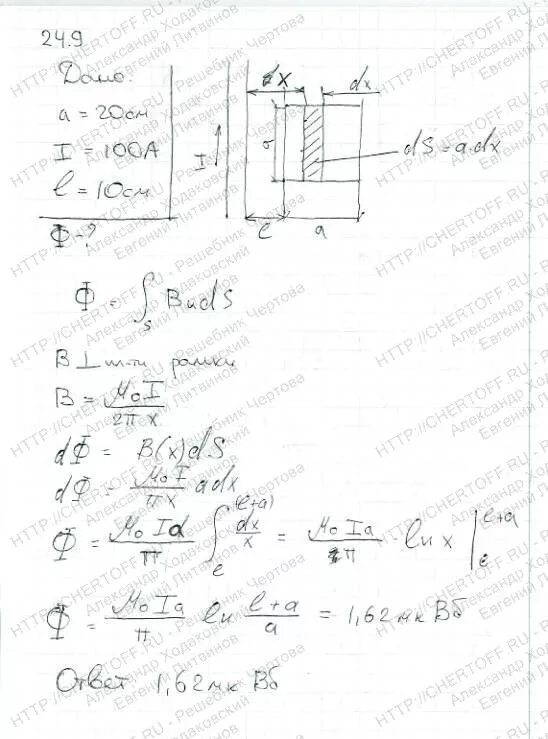 24.9
Дано:
a = 20см
I = 100А
l = 10см
Ф - ?
x
dx
a
I
dS = a dx
l
a
Ф = ∫_S Bn dS
B ⊥ пл-ти рамки
B = μ₀I / 2πx
dФ = B(x)dS
dФ = μ₀I / πx a dx
Ф = μ₀Ia / π ∫_l^(l+a) dx / x = μ₀Ia / π · ln x |_l^(l+a)
Ф = μ₀Ia / π ln (l+a) / a = 1,62 мк Вб
Ответ 1,62 мк Вб
HTTP://CHERTOFF.RU - Решебник Чертова
Александр Ходаковский
Евгений Литвинов